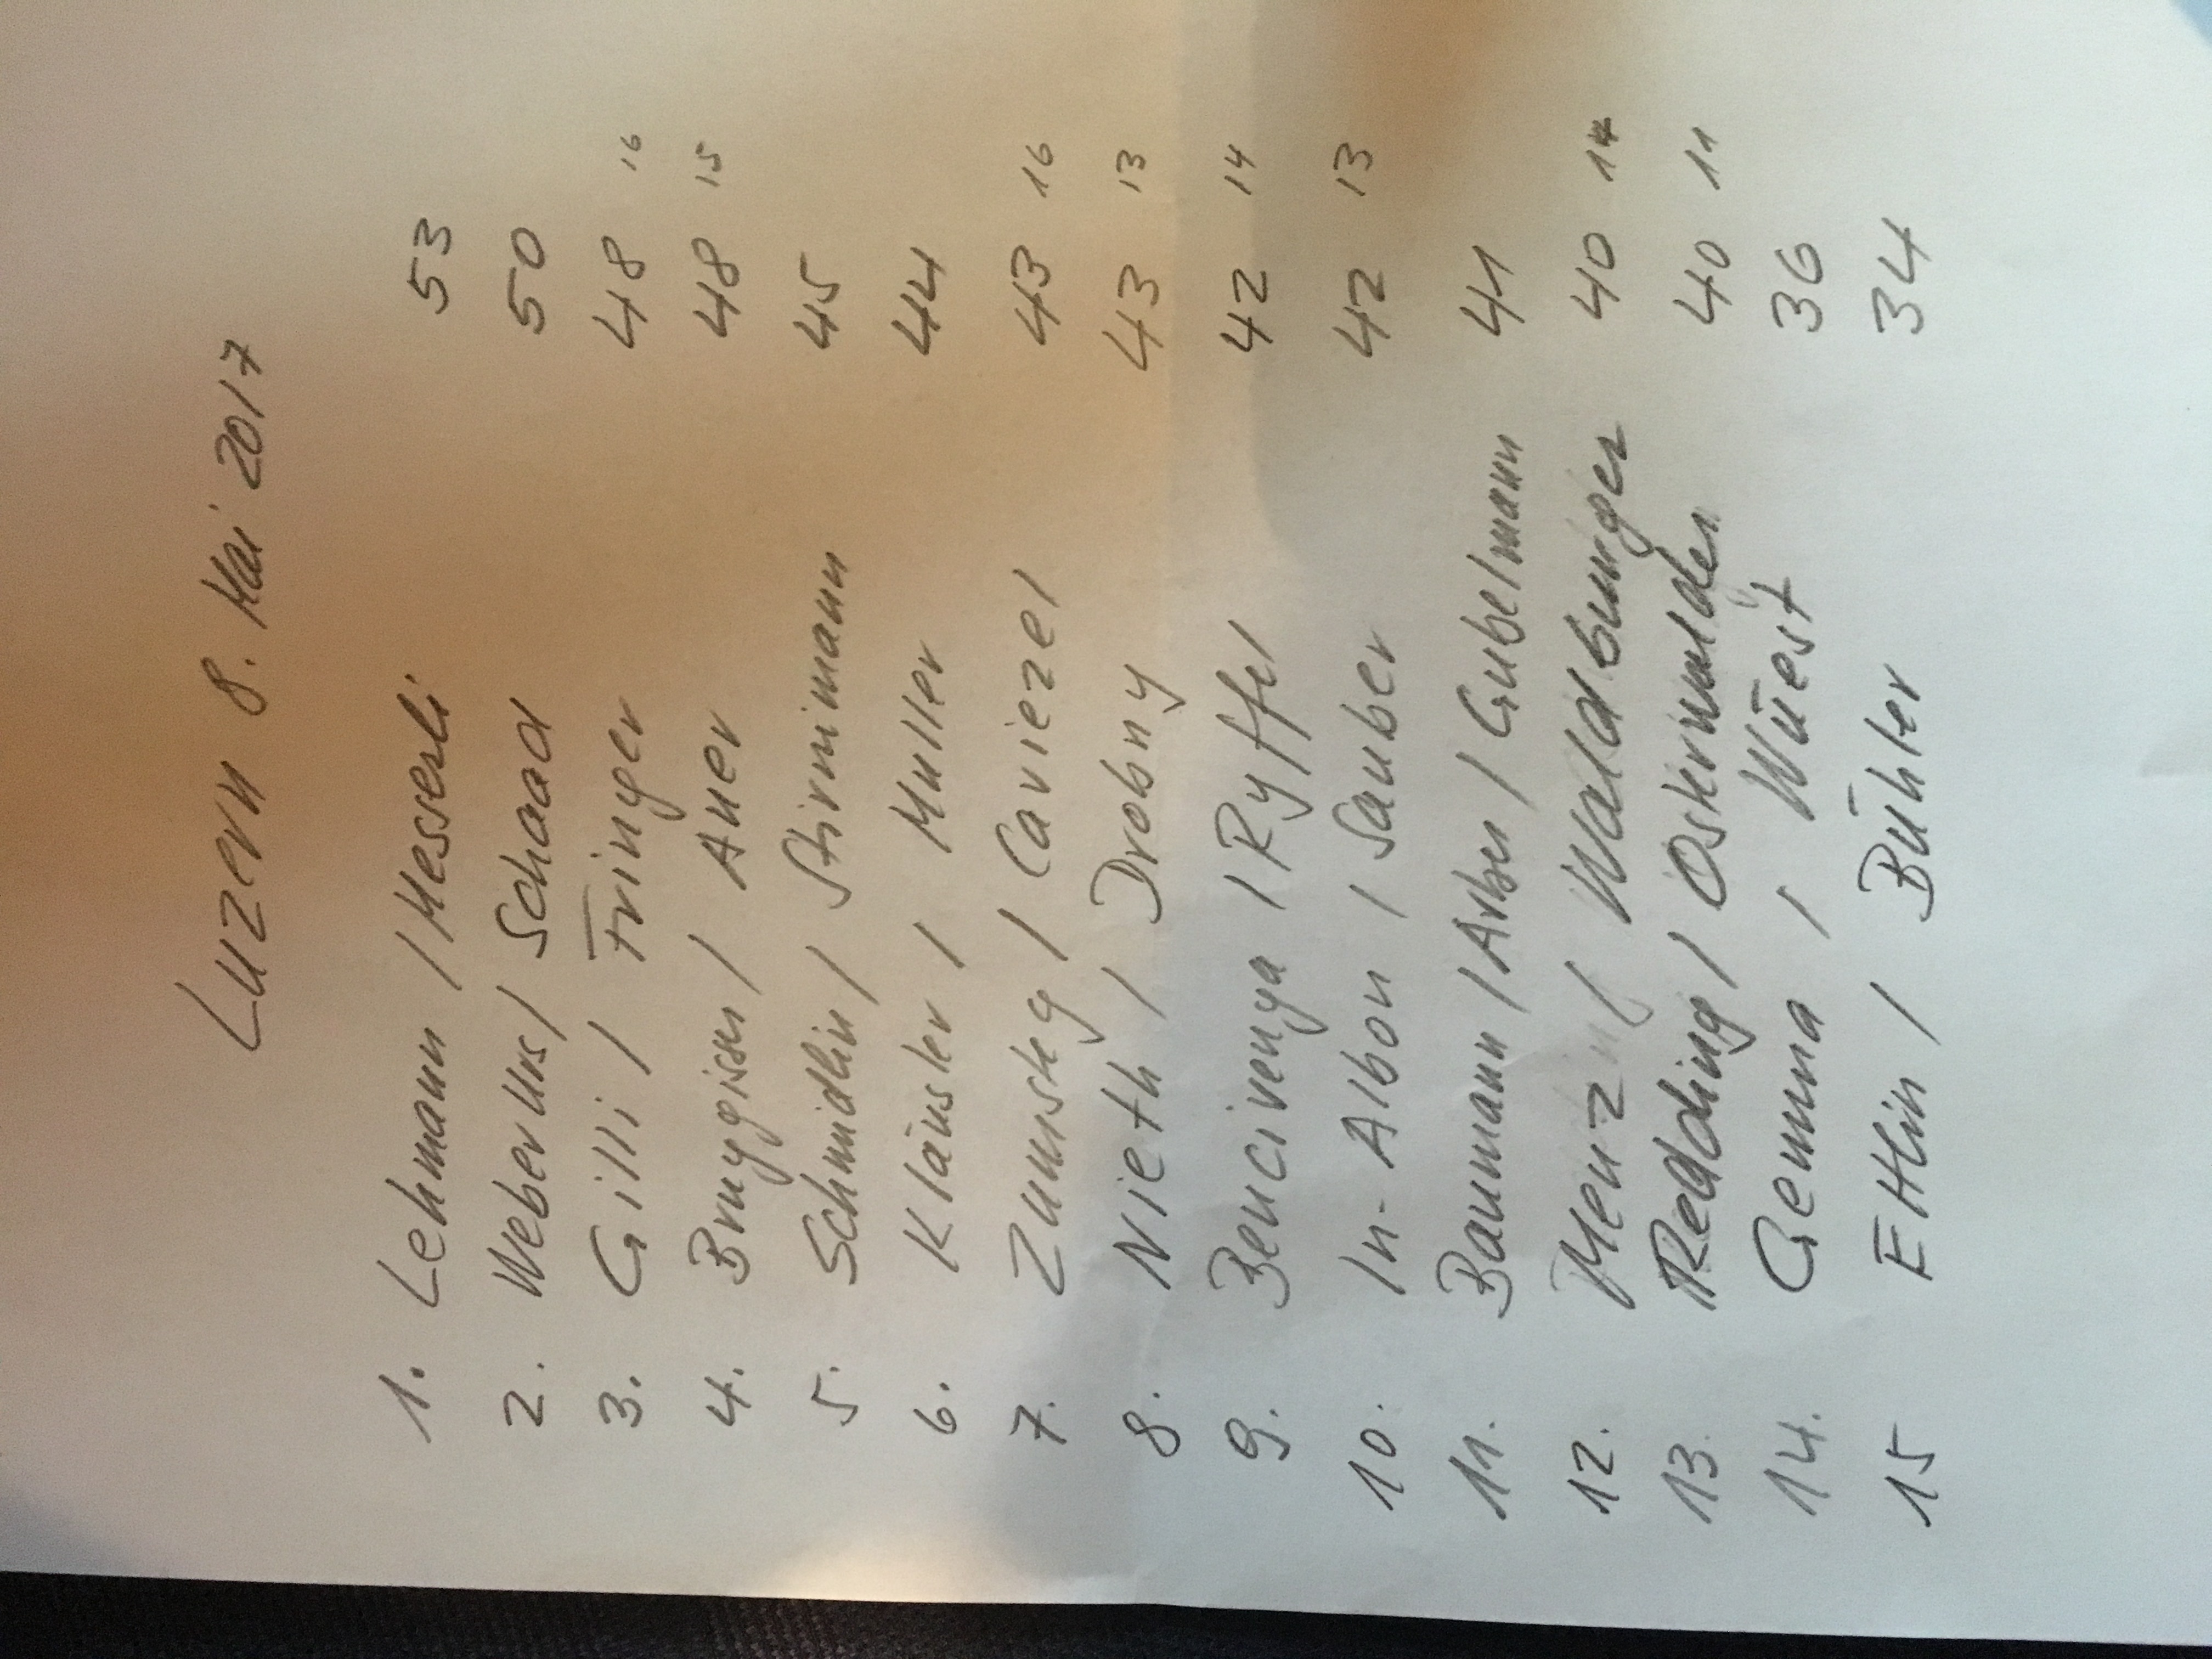 Luzern 8. Mai 2017
1. Lehmann / Messerli 53
2. Weber Urs / Schaad 50
3. Gilli / Fringer 48 16
4. Bruggisser / Auer 48 15
5. Schmidlin / Stirnimann 45
6. Kläusler / Muller 44
7. Zumsteg / Caviezel 43 16
8. Nieth / Drobny 43 13
9. Bencivenga / Ryffel 42 14
10. In-Albon / Sauber 42 13
11. Baumann / Arber / Gubelmann 41
12. Menz / Waldburger 40 14
13. Redding / Osterwalder 40 11
14. Gemma / Wüest 36
15 Ettlin / Bühler 34